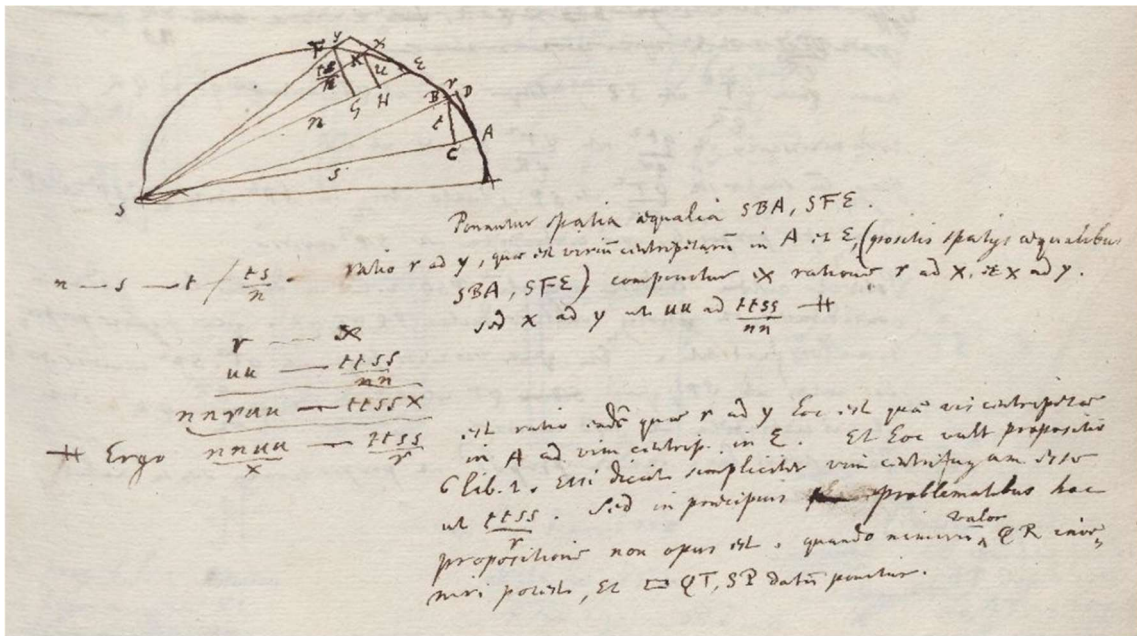 F y x
K u E
ts/n
n G H B r D
t A
S s C
Ponantur spatia æqualia SBA, SFE.
ratio r ad y, quæ est virium centripetarū in A et E, (positis spatijs æqualibus
n — s — t / ts/n . SBA, SFE) componitur ex ratione r ad x, et x ad y.
sed x ad y ut uu ad ttss/nn ╫
r — x
uu — ttss/nn
nnruu — ttssx
╫ Ergo nnuu/x — ttss/r est ratio eadē quæ r ad y hoc est quæ vis centripetæ
in A ad vim centrip. in E. Et hoc vult propositio
6 lib. 1. etsi dicit simpliciter vim centrifugam esse
ut ttss/r. Sed in præcipuis problematibus hac
propositione non opus est, quando nimirū valor QR inve-
niri potest, et ▭ QT, SP datū ponitur.